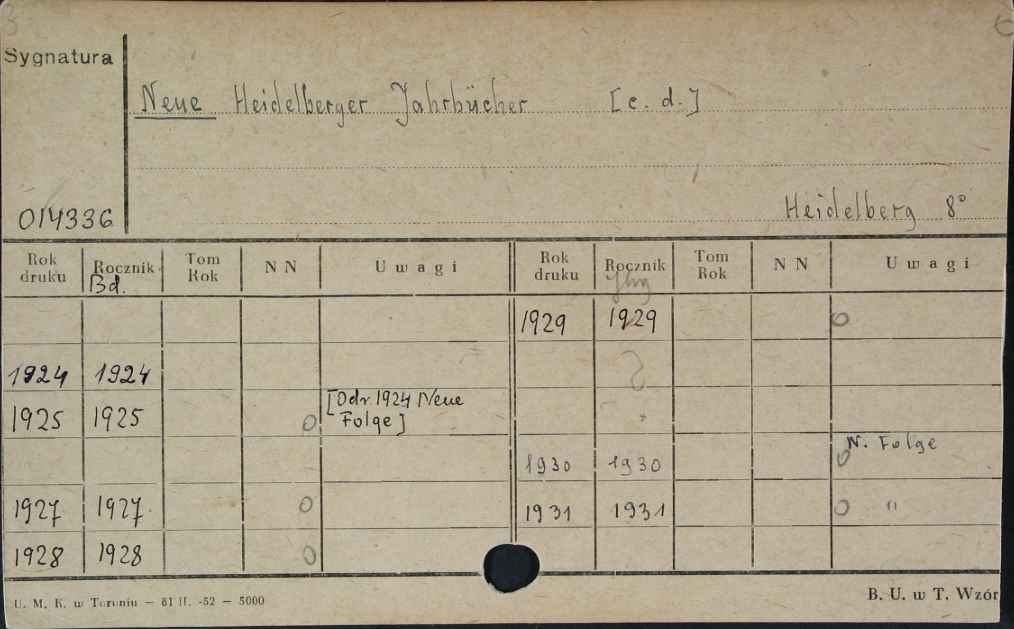 Sygnatura
Neue Heidelberger Jahrbücher [c. d.]
Heidelberg 8°
014336
Rok druku Rocznik Bd. Tom Rok NN Uwagi Rok druku Rocznik Jhg Tom Rok NN Uwagi
1929 1929 0
1924 1924
1925 1925 0 [Od r. 1924 Neue Folge]
1930 1930 0 N. Folge
1927 1927. 0 1931 1931 0 "
1928 1928 0
U. M. K. w Toruniu — 61 II. -52 — 5000
B. U. w T. Wzór